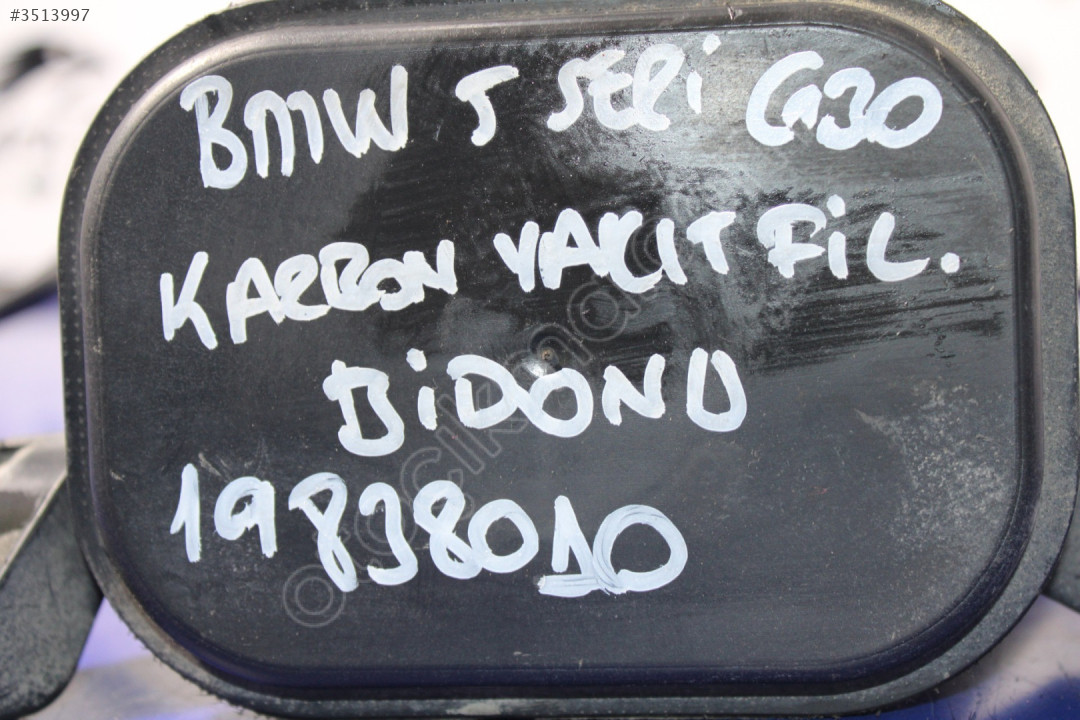 #3513997
BMW 5 SERİ G30
KARBON YAKIT FİL.
BİDONU
1983801 0